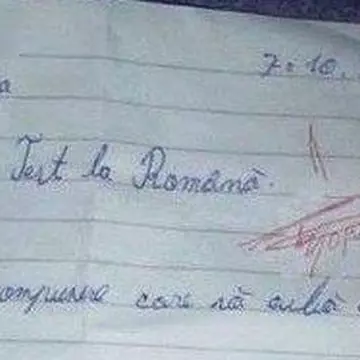 7.10.
a
Test la Română.
ompunere care să aibă